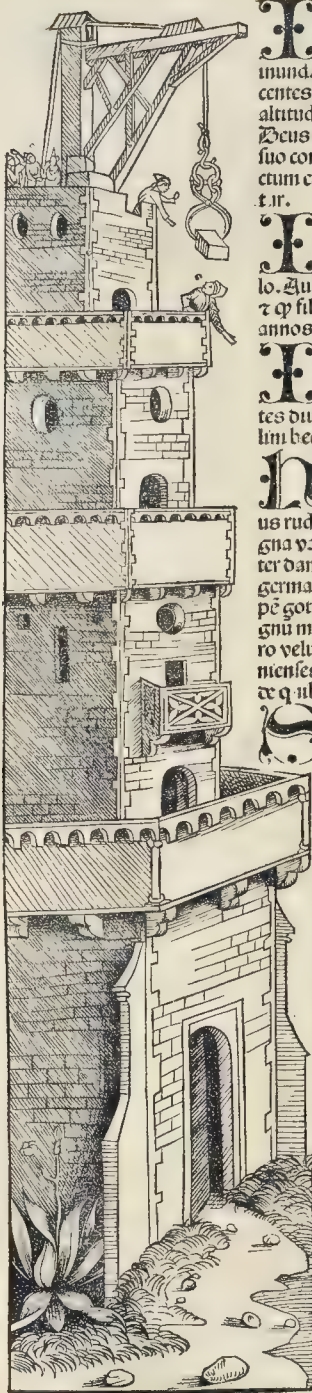 I
inund.
centes
altitud
Deus
suo con
ctum c
t.ir.
I
lo. Au
⁊ ꝙ fil
annos
I
tes du
lim bec
h
us rud
gna va
ter dan
germa
pē got
gnū m
ro velu
nienses
de q ul
S